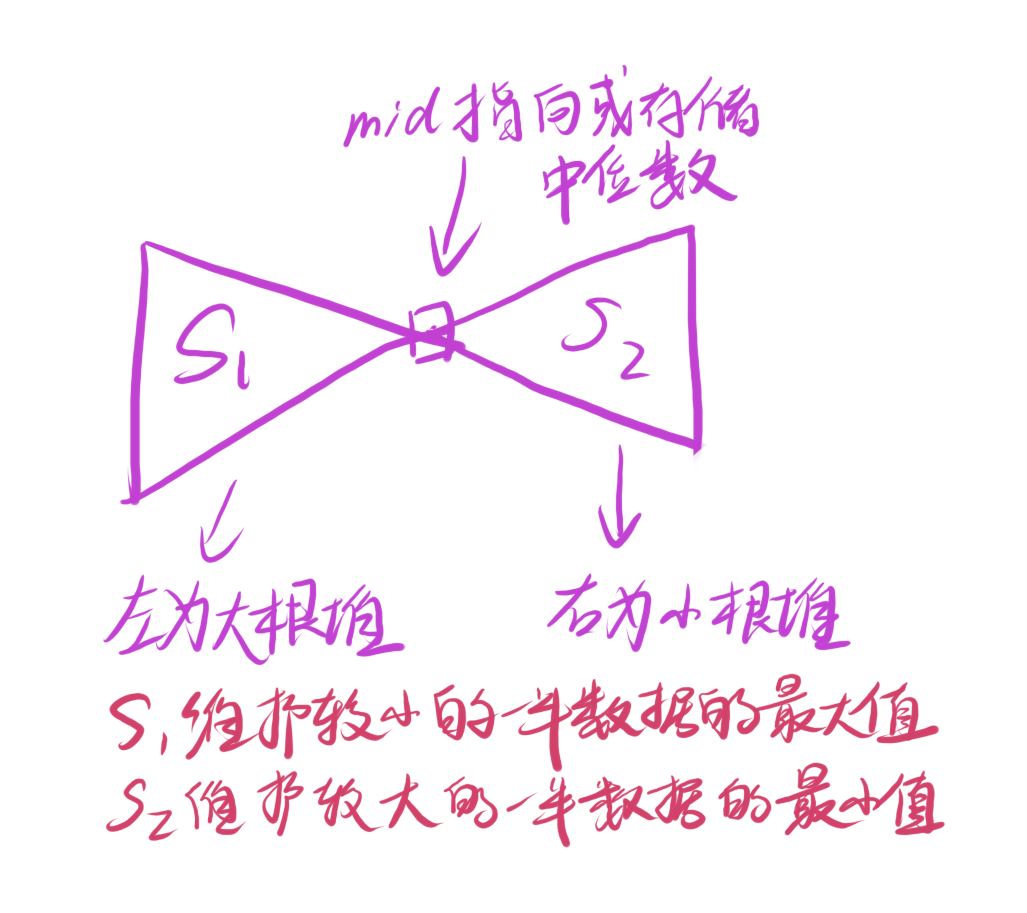 mid指向或存储
中位数
S₁
S₂
左为大根堆
右为小根堆
S₁维护较小的一半数据的最大值
S₂维护较大的一半数据的最小值